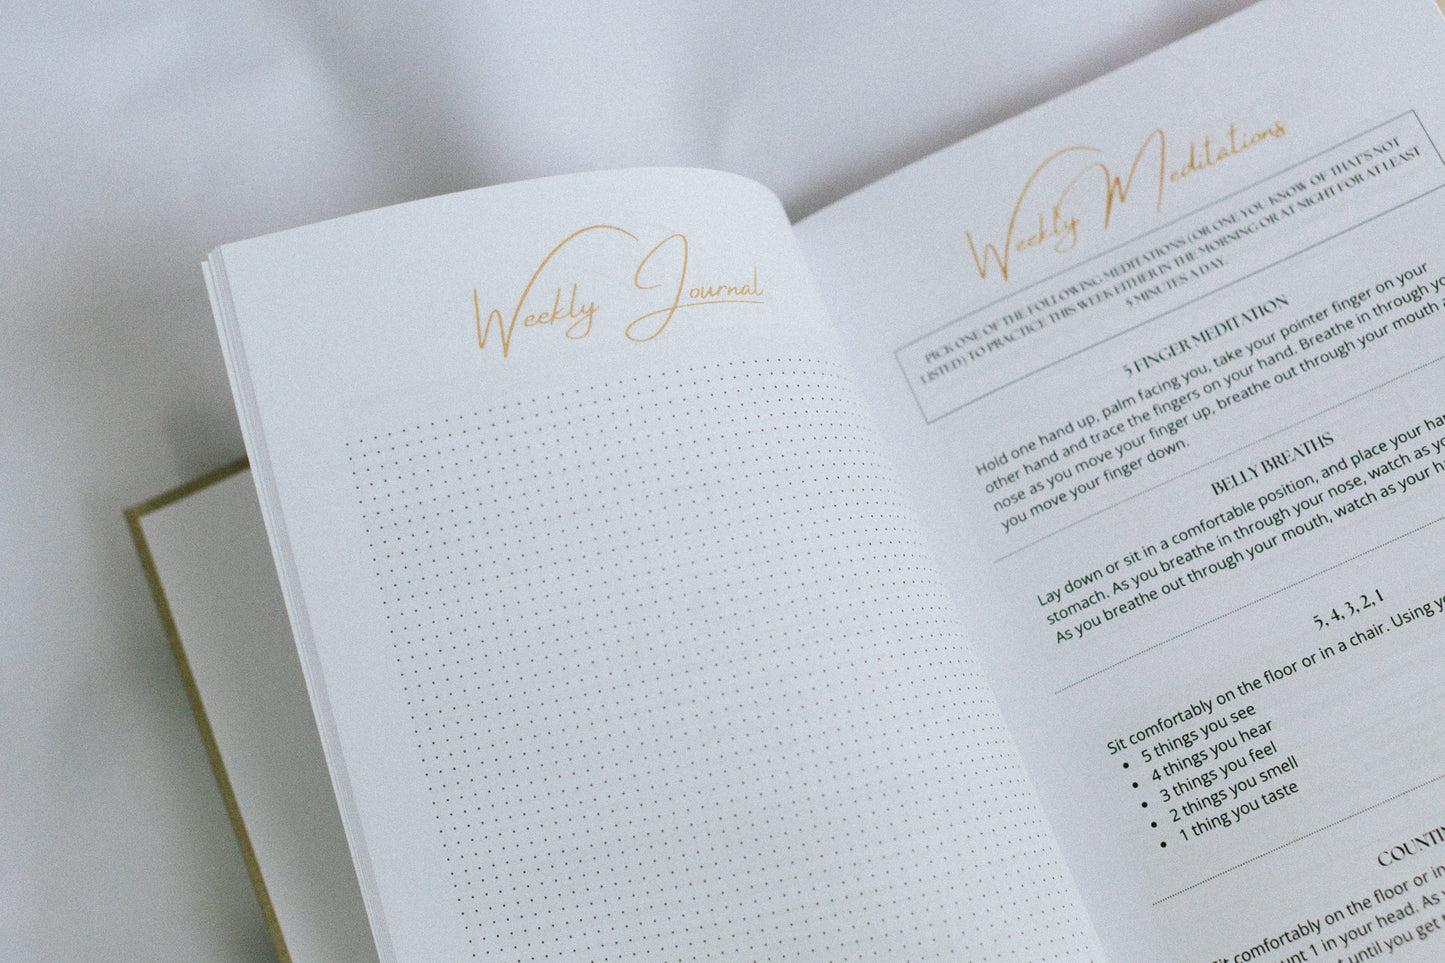 Weekly Journal
Weekly Meditations
PICK ONE OF THE FOLLOWING MEDITATIONS (OR ONE YOU KNOW OF THAT'S NOT
LISTED) TO PRACTICE THIS WEEK EITHER IN THE MORNING OR AT NIGHT FOR AT LEAST
5 MINUTES A DAY.
5 FINGER MEDITATION
Hold one hand up, palm facing you, take your pointer finger on your
other hand and trace the fingers on your hand. Breathe in through
nose as you move your finger up, breathe out through your mouth
you move your finger down.
BELLY BREATHS
Lay down or sit in a comfortable position, and place your
stomach. As you breathe in through your nose, watch as
As you breathe out through your mouth, watch as your
5, 4, 3, 2, 1
Sit comfortably on the floor or in a chair. Using
• 5 things you see
• 4 things you hear
• 3 things you feel
• 2 things you smell
• 1 thing you taste
comfortably on the floor or in
1 in your head. As
until you get